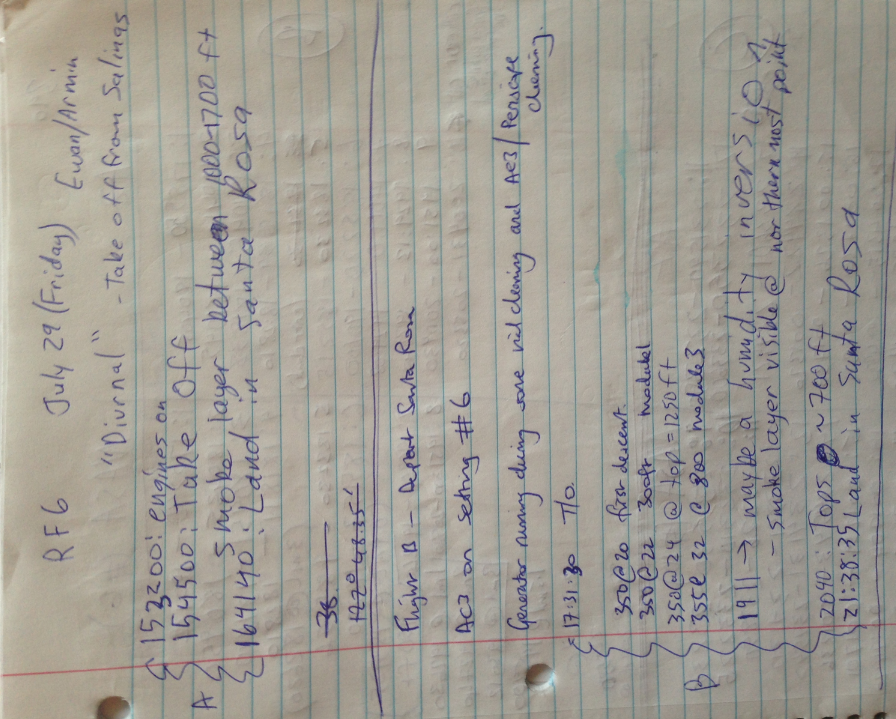 RF6 July 29 (Friday) Ewan/Armin
"Diurnal" - Take off from Salinas
{ 153200: engines on
{ 154500: Take Off
A { smoke layer between 1000-1700 ft
{ 164140: Land in Santa Rosa
38
122° 48.35'
Flight B - Depart Santa Rosa
AC3 on setting #6
Generator running during some vial cleaning and AC3/Periscope cleaning.
{ 17:31:30 T/O.
350@20 first descent.
350@22 300ft module1
350@24 @ top = 1250ft
B 355@32 @ 800 module3
1911 → maybe a humidity inversion
- smoke layer visible @ northern most point
2040: Tops ~700ft
21:38:35 Land in Santa Rosa